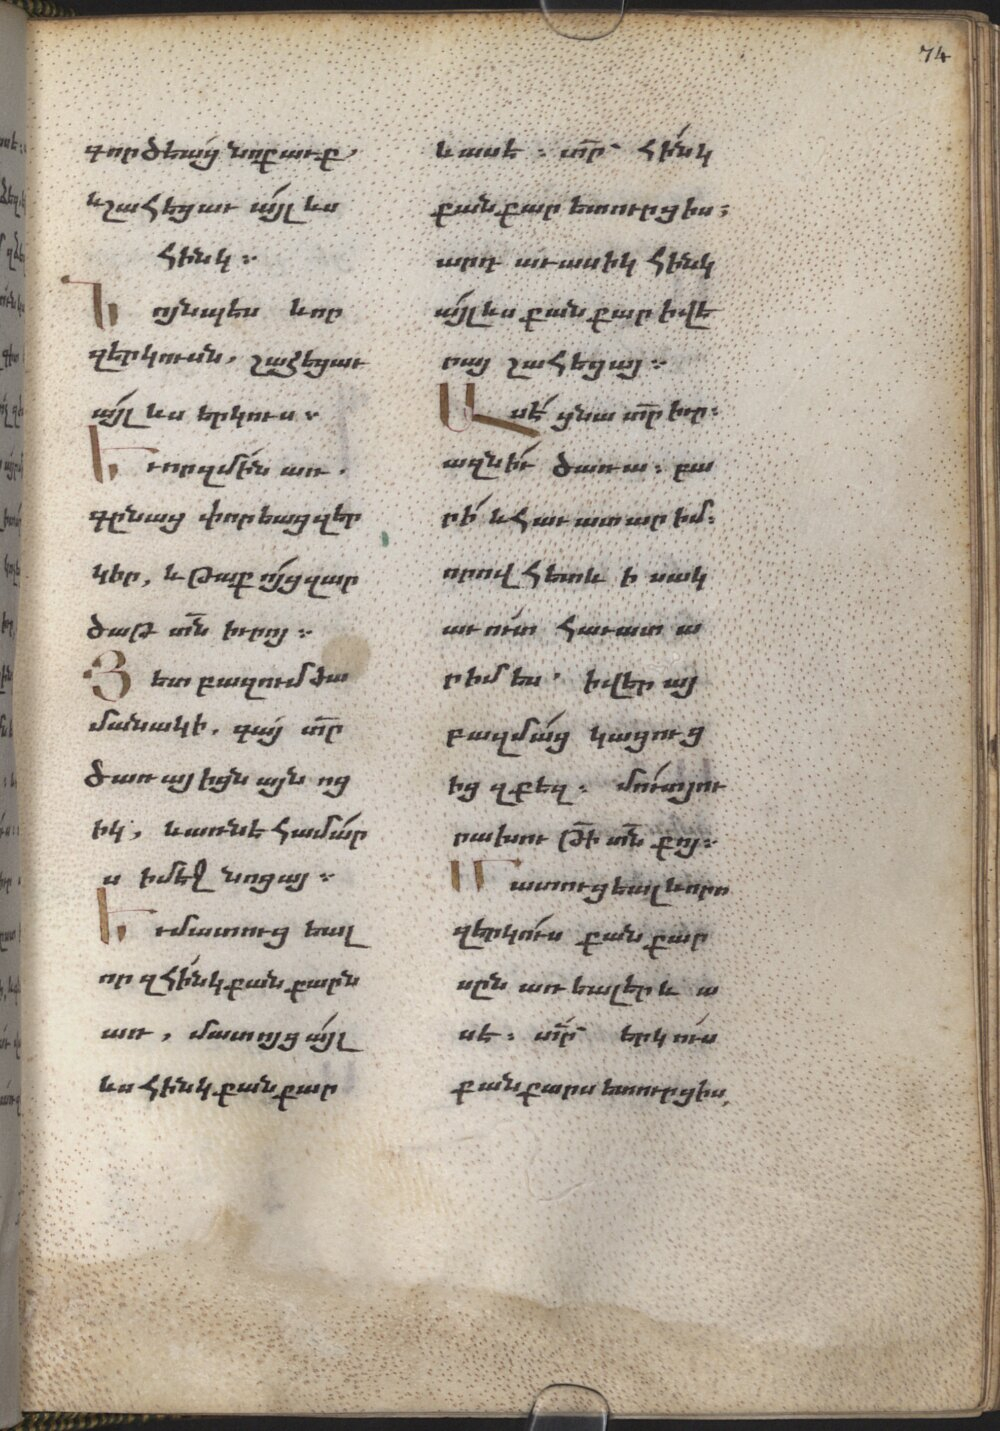 74
գործեաց նոքաւք
և շահեցաւ այլ ևս
հինկ ։
Նոյնպես և որ
զերկուսն. շահեցաւ
այլ ևս երկուս ։
Եւ որ զմինն առ.
գընաց փորեաց զեր
կիր, և թաքոյց զար
ծաթ տն իւրոյ ։
Յետ բազում ժա
մանակի. գայ տր
ծառայիցն այնոց
իկ, և առնե համար
ս ի մեջ նոցայ ։
Եւ մատուցեալ
որ զհինկ քանքարն
առ, մատոյց այլ
ևս հինկ քանքար
և ասե ։ տր հինկ
քանքար ետուր ցիս ։
արդ աւասիկ հինկ
այլ ևս քանքար ի վե
րայ շահեցայ ։
Ասե ցնա տր իւր ։
ազնիւ ծառա ։ բա
րի և հաւատարիմ ։
որովհետև ի սակ
աւուտ հաւատա
րիմ ես. ի վերայ
բազմաց կացուց
ից զքեզ ։ մուտ յու
րախութի տն քոյ ։
Մատուցեալ և որ
զերկուս քանքար
սըն առեալ եր և ա
սե ։ տր երկուս
քանքարս ետուր ցիս,